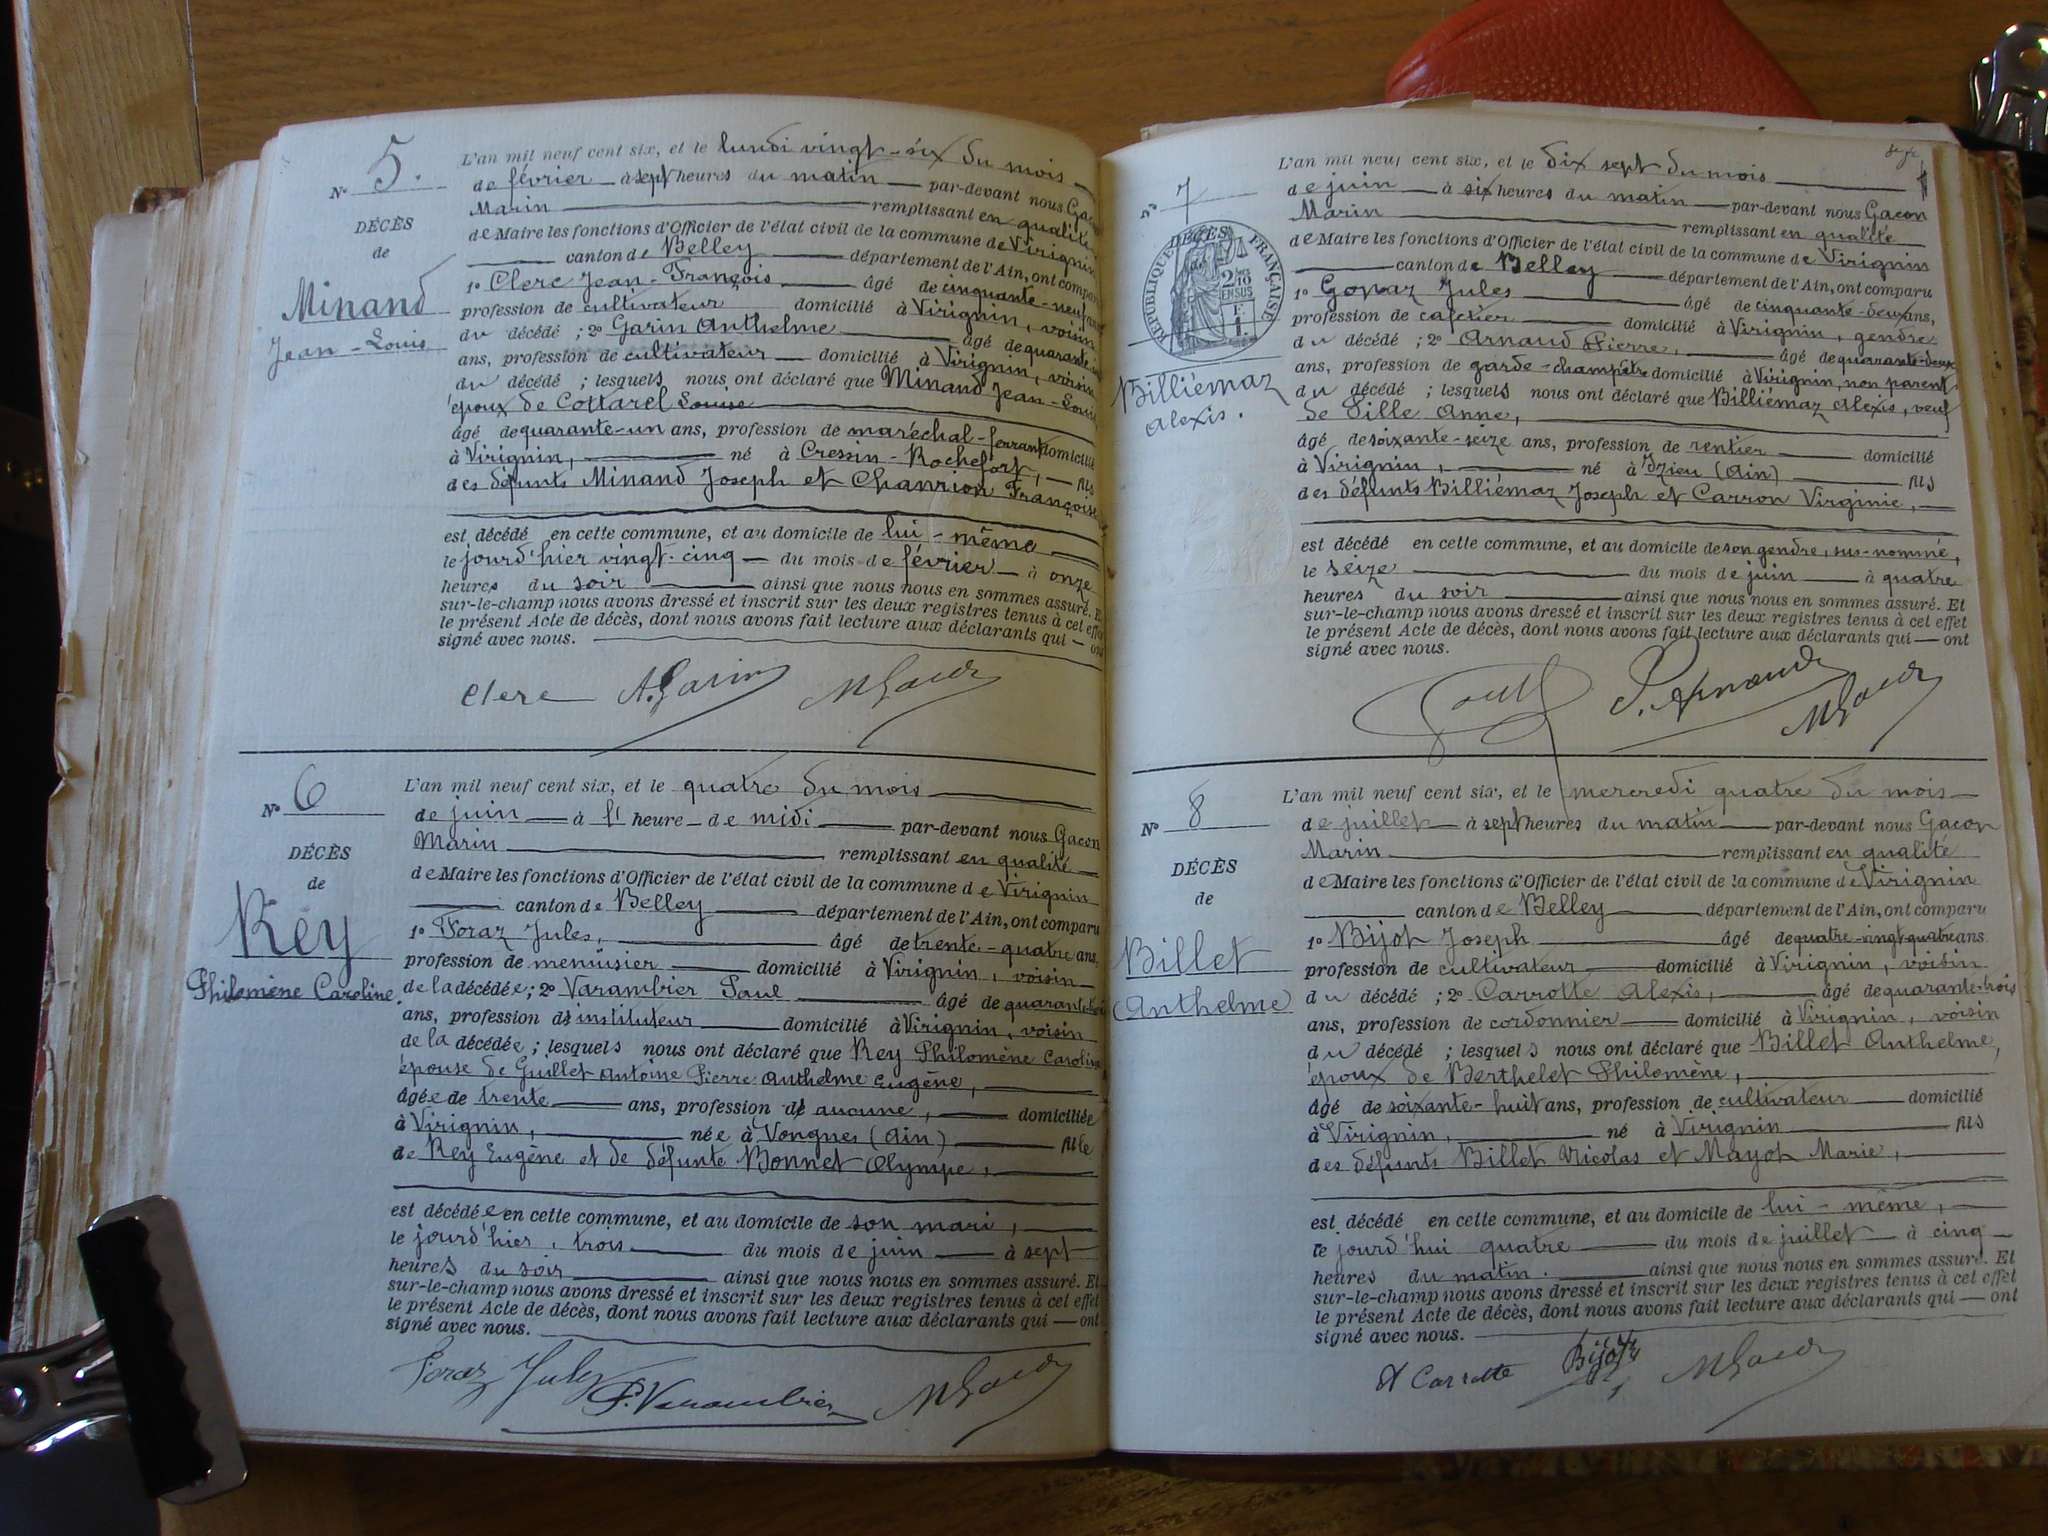 N° 5.
DÉCÈS
de
Minand
Jean-Louis
L'an mil neuf cent six, et le lundi vingt-six du mois
de février à sept heures du matin par-devant nous
Marin remplissant en qualité
de Maire les fonctions d'Officier de l'état civil de la commune de Virignin
canton de Belley département de l'Ain, ont comparu
1° Clerc Jean-François âgé de cinquante-neuf ans
profession de cultivateur domicilié à Virignin, voisin
du décédé ; 2° Garin Anthelme âgé de quarante
ans, profession de cultivateur domicilié à Virignin, voisin
du décédé ; lesquels nous ont déclaré que Minand Jean-Louis
époux de Cottarel Louise
âgé de quarante-un ans, profession de maréchal-ferrant domicilié
à Virignin, né à Cressin-Rochefort, fils
des défunts Minand Joseph et Chanrion Françoise
est décédé en cette commune, et au domicile de lui-même
le jourd'hier vingt-cinq du mois de février à onze
heures du soir ainsi que nous nous en sommes assuré. Et
sur-le-champ nous avons dressé et inscrit sur les deux registres tenus à cet effet
le présent Acte de décès, dont nous avons fait lecture aux déclarants qui ont
signé avec nous.
Clerc A. Garin M Gacon
N° 6
DÉCÈS
de
Rey
Philomène Caroline.
L'an mil neuf cent six, et le quatre du mois
de juin à l' heure de midi par-devant nous Gacon
Marin remplissant en qualité
de Maire les fonctions d'Officier de l'état civil de la commune de Virignin
canton de Belley département de l'Ain, ont comparu
1° Foraz Jules, âgé de trente-quatre ans.
profession de menuisier domicilié à Virignin, voisin
de la décédée ; 2° Varambier Paul âgé de
ans, profession d' instituteur domicilié à Virignin, voisin
de la décédée ; lesquels nous ont déclaré que Rey Philomène Caroline
épouse de Guillet Antoine Pierre Anthelme Eugène,
âgée de trente ans, profession d' aucune, domiciliée
à Virignin, née à Vongnes (Ain) fille
de Rey Eugène et de défunte Bonnet Olympe,
est décédée en cette commune, et au domicile de son mari,
le jourd'hier, trois du mois de juin à sept
heures du soir ainsi que nous nous en sommes assuré. Et
sur-le-champ nous avons dressé et inscrit sur les deux registres tenus à cet effet
le présent Acte de décès, dont nous avons fait lecture aux déclarants qui ont
signé avec nous.
Foraz Jules P. Varambier M Gacon
N° 7
RÉPUBLIQUE FRANÇAISE
DÉCÈS
2/10 EN SUS
1 F.
Billiémaz
Alexis.
L'an mil neuf cent six, et le dix sept du mois
de juin à six heures du matin par-devant nous Gacon
Marin remplissant en qualité
de Maire les fonctions d'Officier de l'état civil de la commune de Virignin
canton de Belley département de l'Ain, ont comparu
1° Jules âgé de cinquante-deux ans,
profession de cafetier domicilié à Virignin, gendre
du décédé ; 2° Arnaud Pierre, âgé de quarante-deux
ans, profession de garde-champêtre domicilié à Virignin, non parent
du décédé ; lesquels nous ont déclaré que Billiémaz Alexis, veuf
de Pille Anne,
âgé de soixante-seize ans, profession de rentier domicilié
à Virignin, né à Izieu (Ain) fils
des défunts Billiémaz Joseph et Carron Virginie,
est décédé en cette commune, et au domicile de son gendre, sus-nommé,
le seize du mois de juin à quatre
heures du soir ainsi que nous nous en sommes assuré. Et
sur-le-champ nous avons dressé et inscrit sur les deux registres tenus à cet effet
le présent Acte de décès, dont nous avons fait lecture aux déclarants qui ont
signé avec nous.
P. Arnaud M Gacon
N° 8
DÉCÈS
de
Billet
(Anthelme)
L'an mil neuf cent six, et le mercredi quatre du mois
de juillet à sept heures du matin par-devant nous Gacon
Marin remplissant en qualité
de Maire les fonctions d'Officier de l'état civil de la commune de Virignin
canton de Belley département de l'Ain, ont comparu
1° Bijot Joseph âgé de quatre-vingt-quatre ans
profession de cultivateur domicilié à Virignin, voisin
du décédé ; 2° Carrotte Alexis, âgé de quarante-trois
ans, profession de cordonnier domicilié à Virignin, voisin
du décédé ; lesquels nous ont déclaré que Billet Anthelme,
époux de Berthelet Philomène,
âgé de soixante-huit ans, profession de cultivateur domicilié
à Virignin, né à Virignin fils
des défunts Billet Nicolas et Mayot Marie,
est décédé en cette commune, et au domicile de lui-même,
le jourd'hui quatre du mois de juillet à cinq
heures du matin. ainsi que nous nous en sommes assuré. Et
sur-le-champ nous avons dressé et inscrit sur les deux registres tenus à cet effet
le présent Acte de décès, dont nous avons fait lecture aux déclarants qui ont
signé avec nous.
A Carrotte Bijot M Gacon